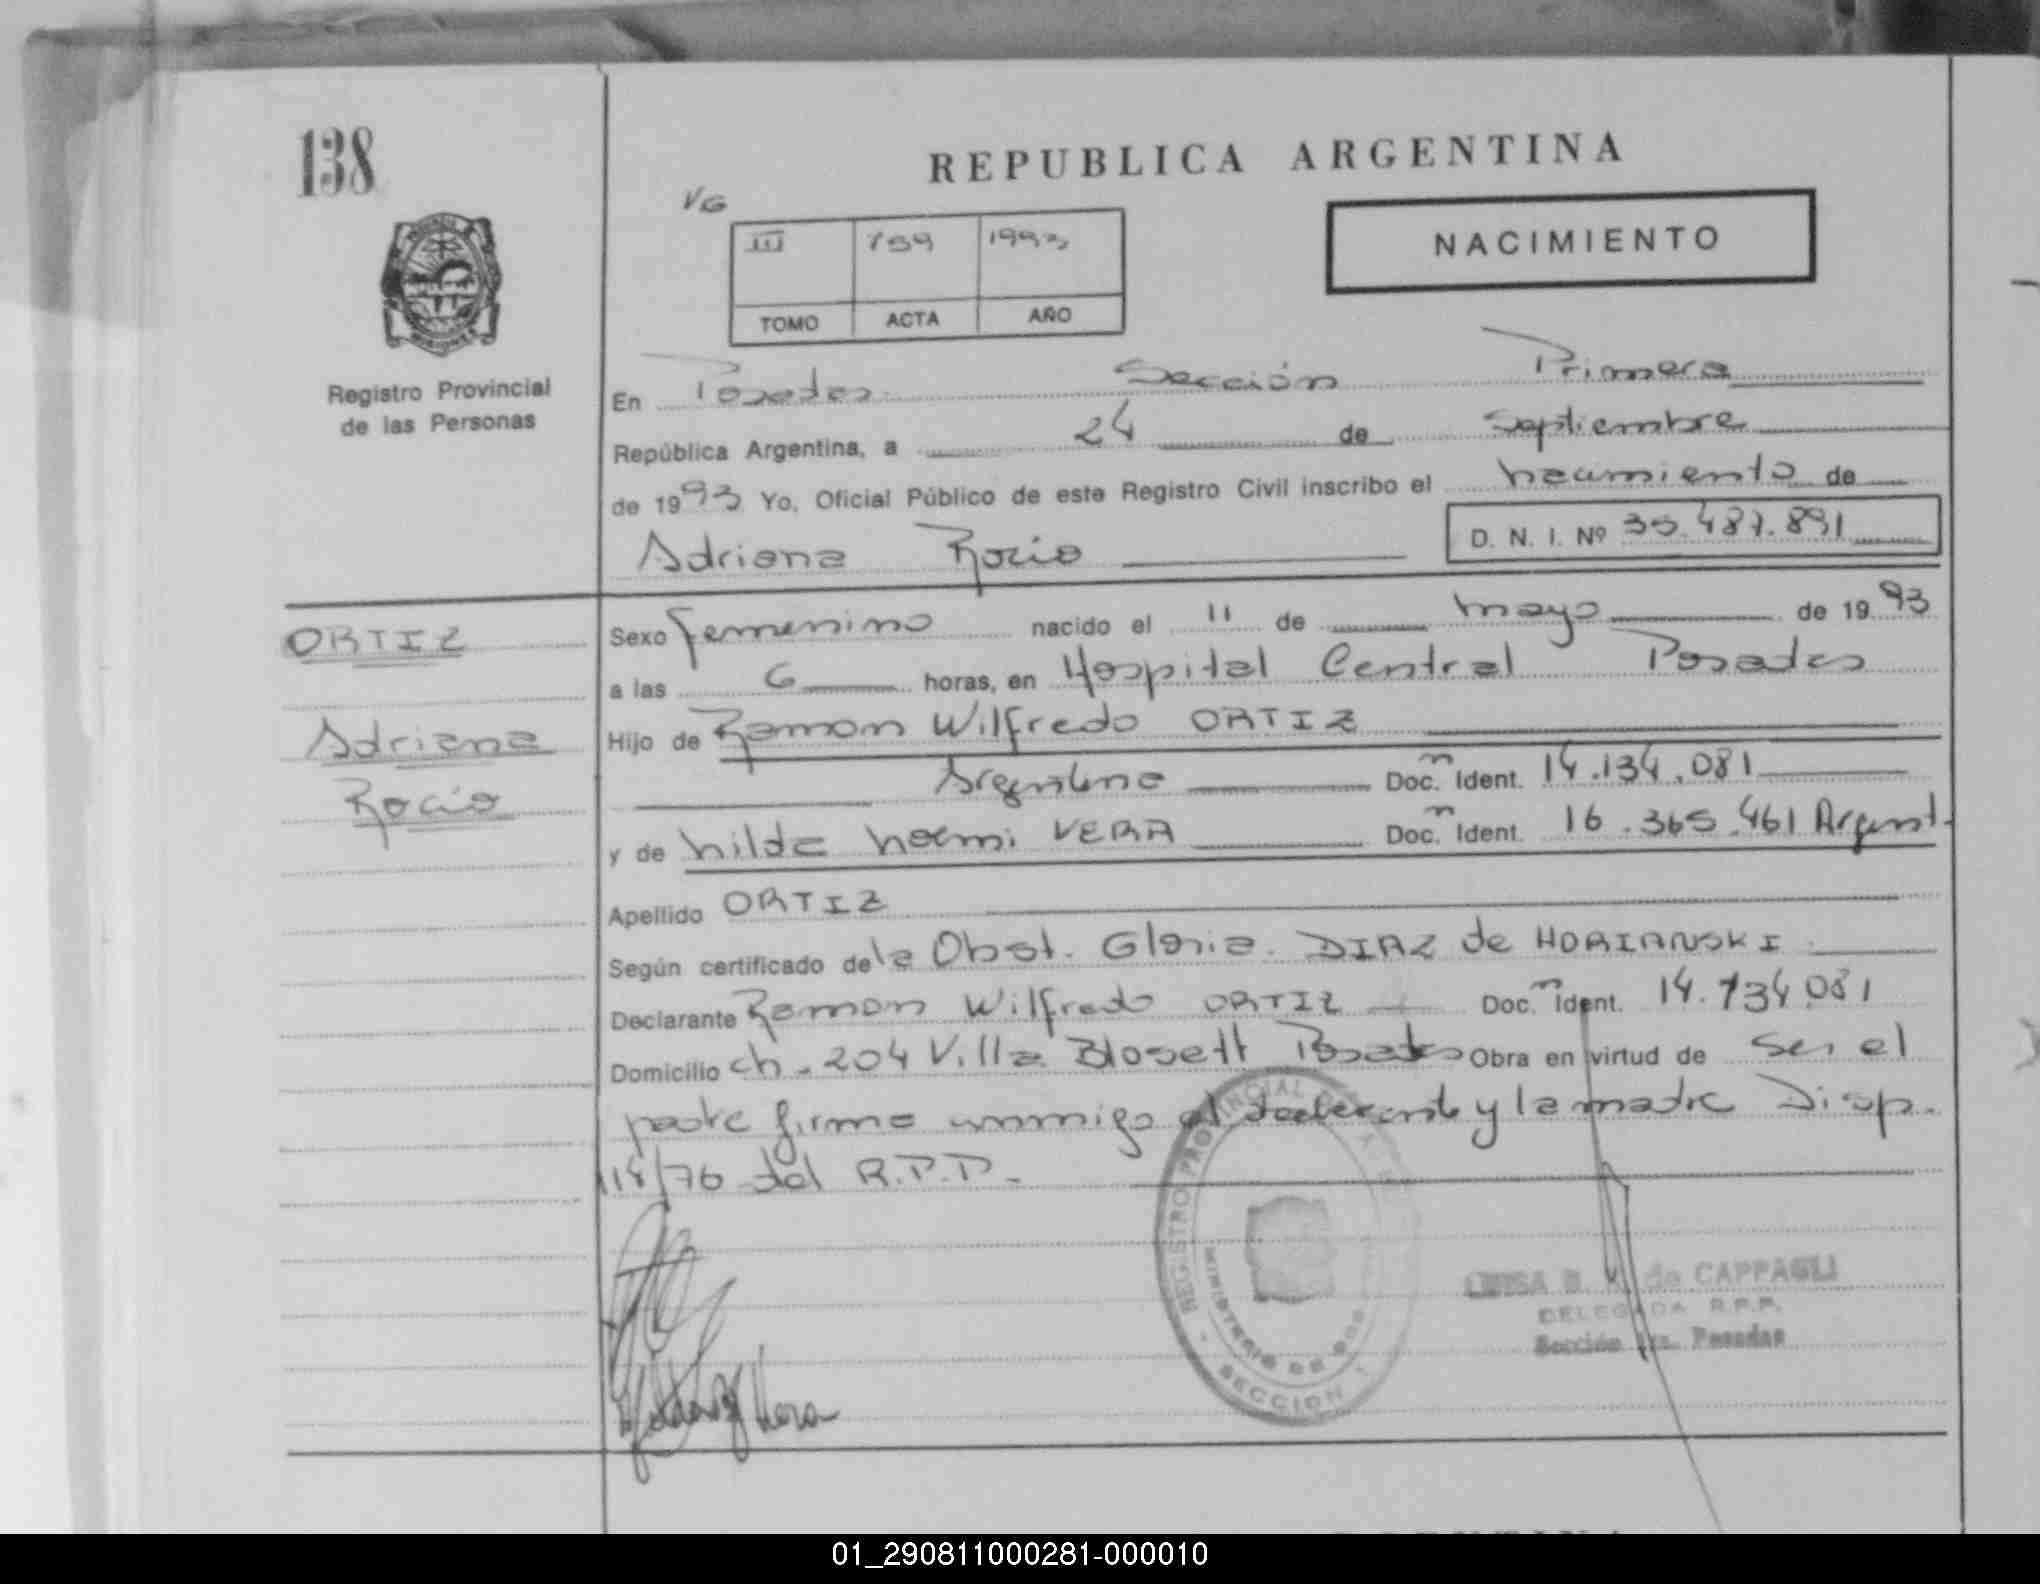 138
REPUBLICA ARGENTINA
VG
NACIMIENTO
III 759 1993
TOMO ACTA AÑO
Registro Provincial
de las Personas
En Posadas Sección Primera
República Argentina, a 24 de Septiembre
de 1993 Yo, Oficial Público de este Registro Civil inscribo el nacimiento de
D. N. I. Nº 35.487.891
Adriana Rocio
ORTIZ
Adriana
Rocio
Sexo femenino nacido el 11 de mayo de 1993
a las 6 horas, en Hospital Central Posadas
Hijo de Ramon Wilfredo ORTIZ
Argentino Doc. Ident. 14.134.081
y de hilda noemi VERA Doc. Ident. 16.365.461 Argent.
Apellido ORTIZ
Según certificado de la Obst. Gloria DIAZ de HORIANSKI
Declarante Ramon Wilfredo ORTIZ Doc. Ident. 14.134.081
Domicilio ch. 204 Villa Blosett Posadas Obra en virtud de Ser el
padre firma conmigo el declarante y la madre Disp.
118/76 del R.P.P.
REGISTRO PROVINCIAL DE LAS
MINISTERIO DE GOB
SECCION 1
LUISA B. V. de CAPPAGLI
DELEGADA R.P.P.
Sección 1ra. Posadas
Vera
01_290811000281-000010